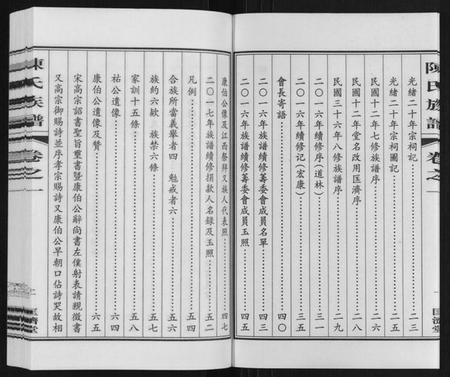 陳氏族譜
卷之一
匡濟堂
光緒二十年宗祠記……二三
光緒二十年宗祠圖記……二五
民國十二年七修族譜序……二六
民國十二年堂名改用匡濟序……二八
民國三十六年八修族譜序……二九
二〇一六年續修序(道林)……三一
二〇一六年續修記(宏康)……三五
會長寄語……四〇
二〇一六年族譜續修籌委會成員名單……四三
二〇一六年族譜續修籌委會成員玉照……四五
康伯公像及江西祭拜父族人代表照……四七
二〇一七年族譜續修捐款人名錄及玉照……五二
凡例……五五
合族所當義舉者四 勉戒者六……
族約六欵 族禁六條……五七
家訓十五條……五八
祐公遺像……六四
康伯公遺像及贊……六五
宋高宗詔書聖旨璽書暨康伯公辭尚書左僕射表請親徵書
又高宗御賜詩並序孝宗賜詩又康伯公早朝口佔詩哭故相
陳氏族譜
卷之一
匡濟堂